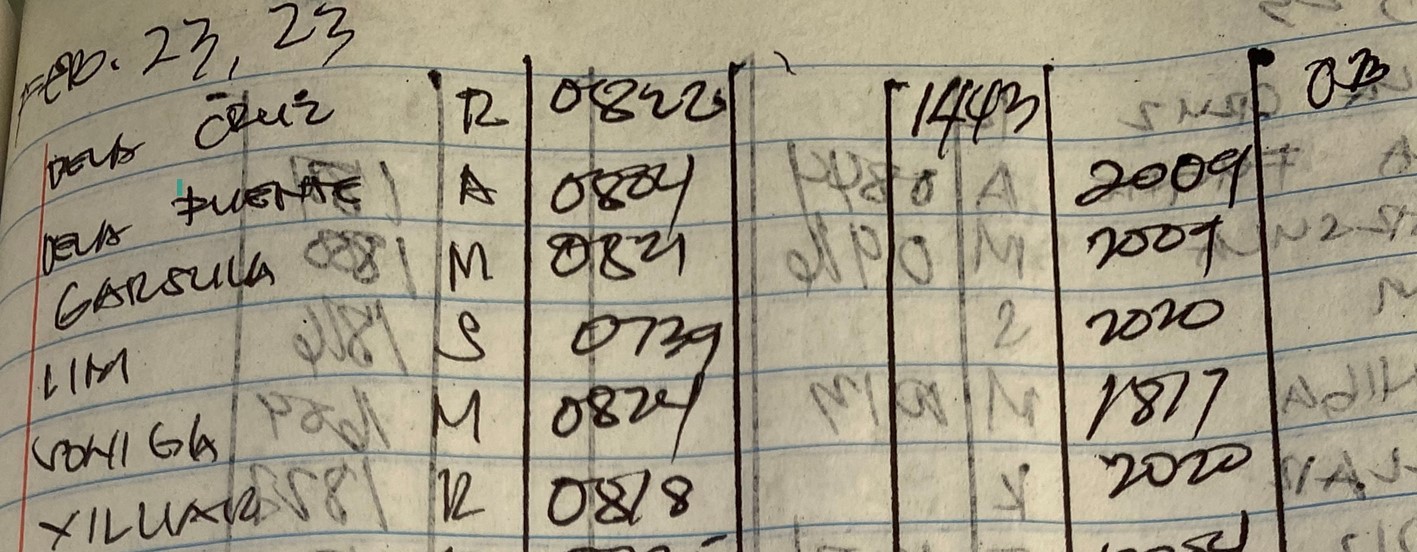 FEB. 23, 23
DELA CRUZ R 0822 1443 OB
DELA FUENTE A 0804 2009
GARSULA M 0821 2009
LIM S 0739 2020
M 0824 1817
R 0818 2020